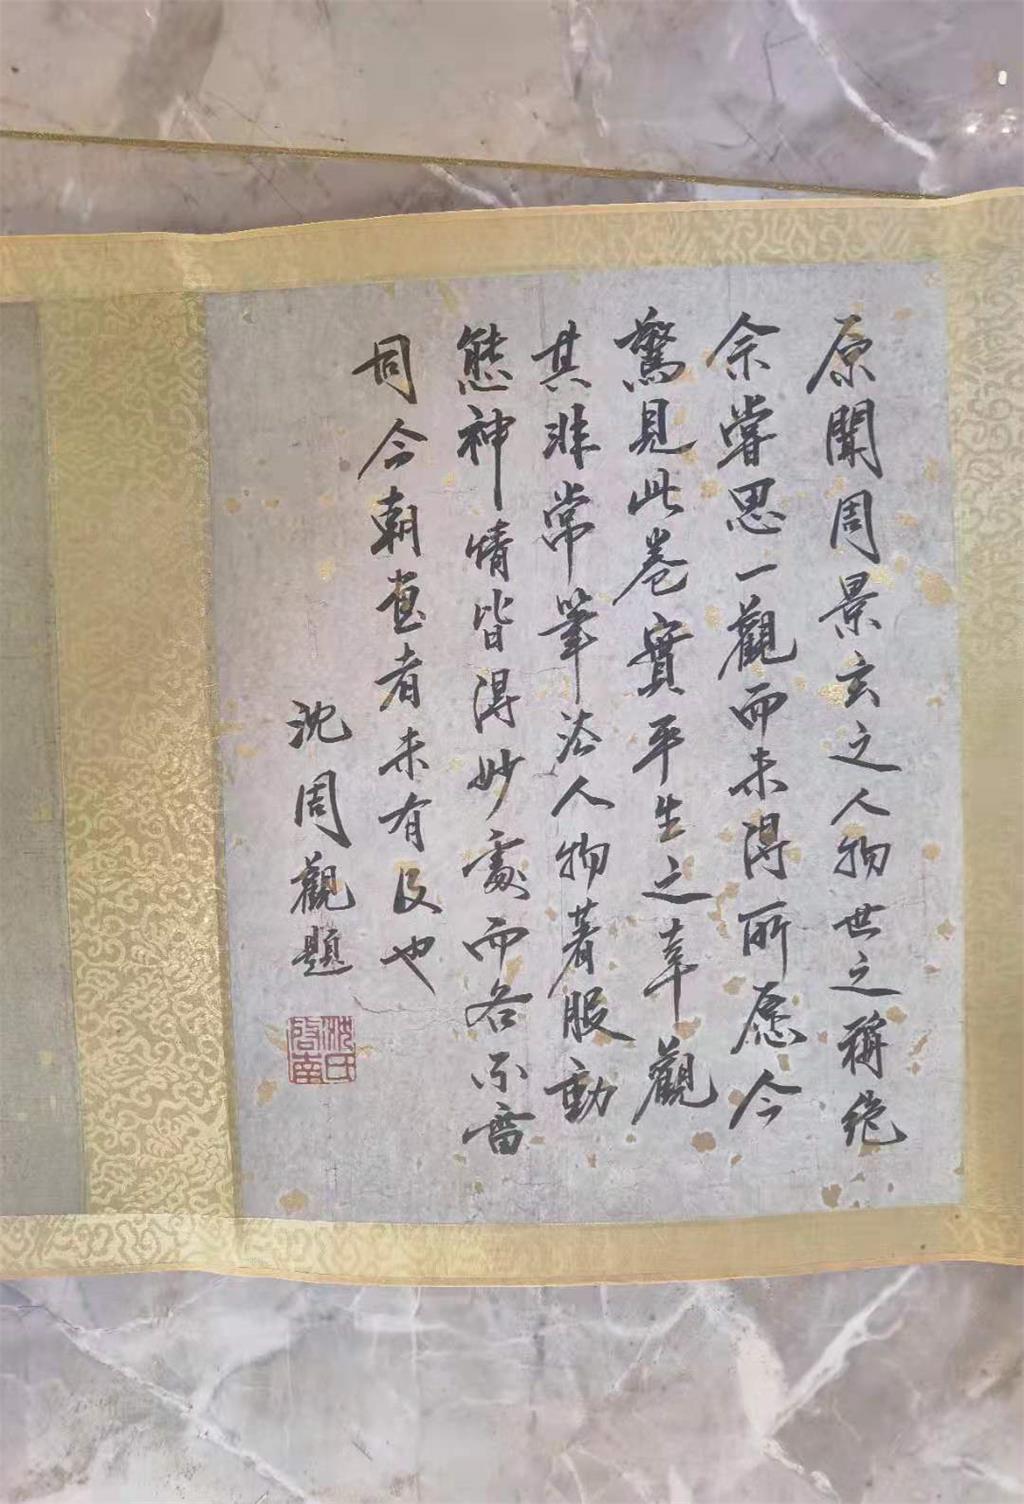 原聞周景玄之人物世之稱絕
余嘗思一觀而未得所愿今
驚見此卷實平生之幸觀
其非常筆法人物著服動
態神情皆得妙處而各不雷
同今朝畫者未有及也
沈周觀題
沈氏啓南